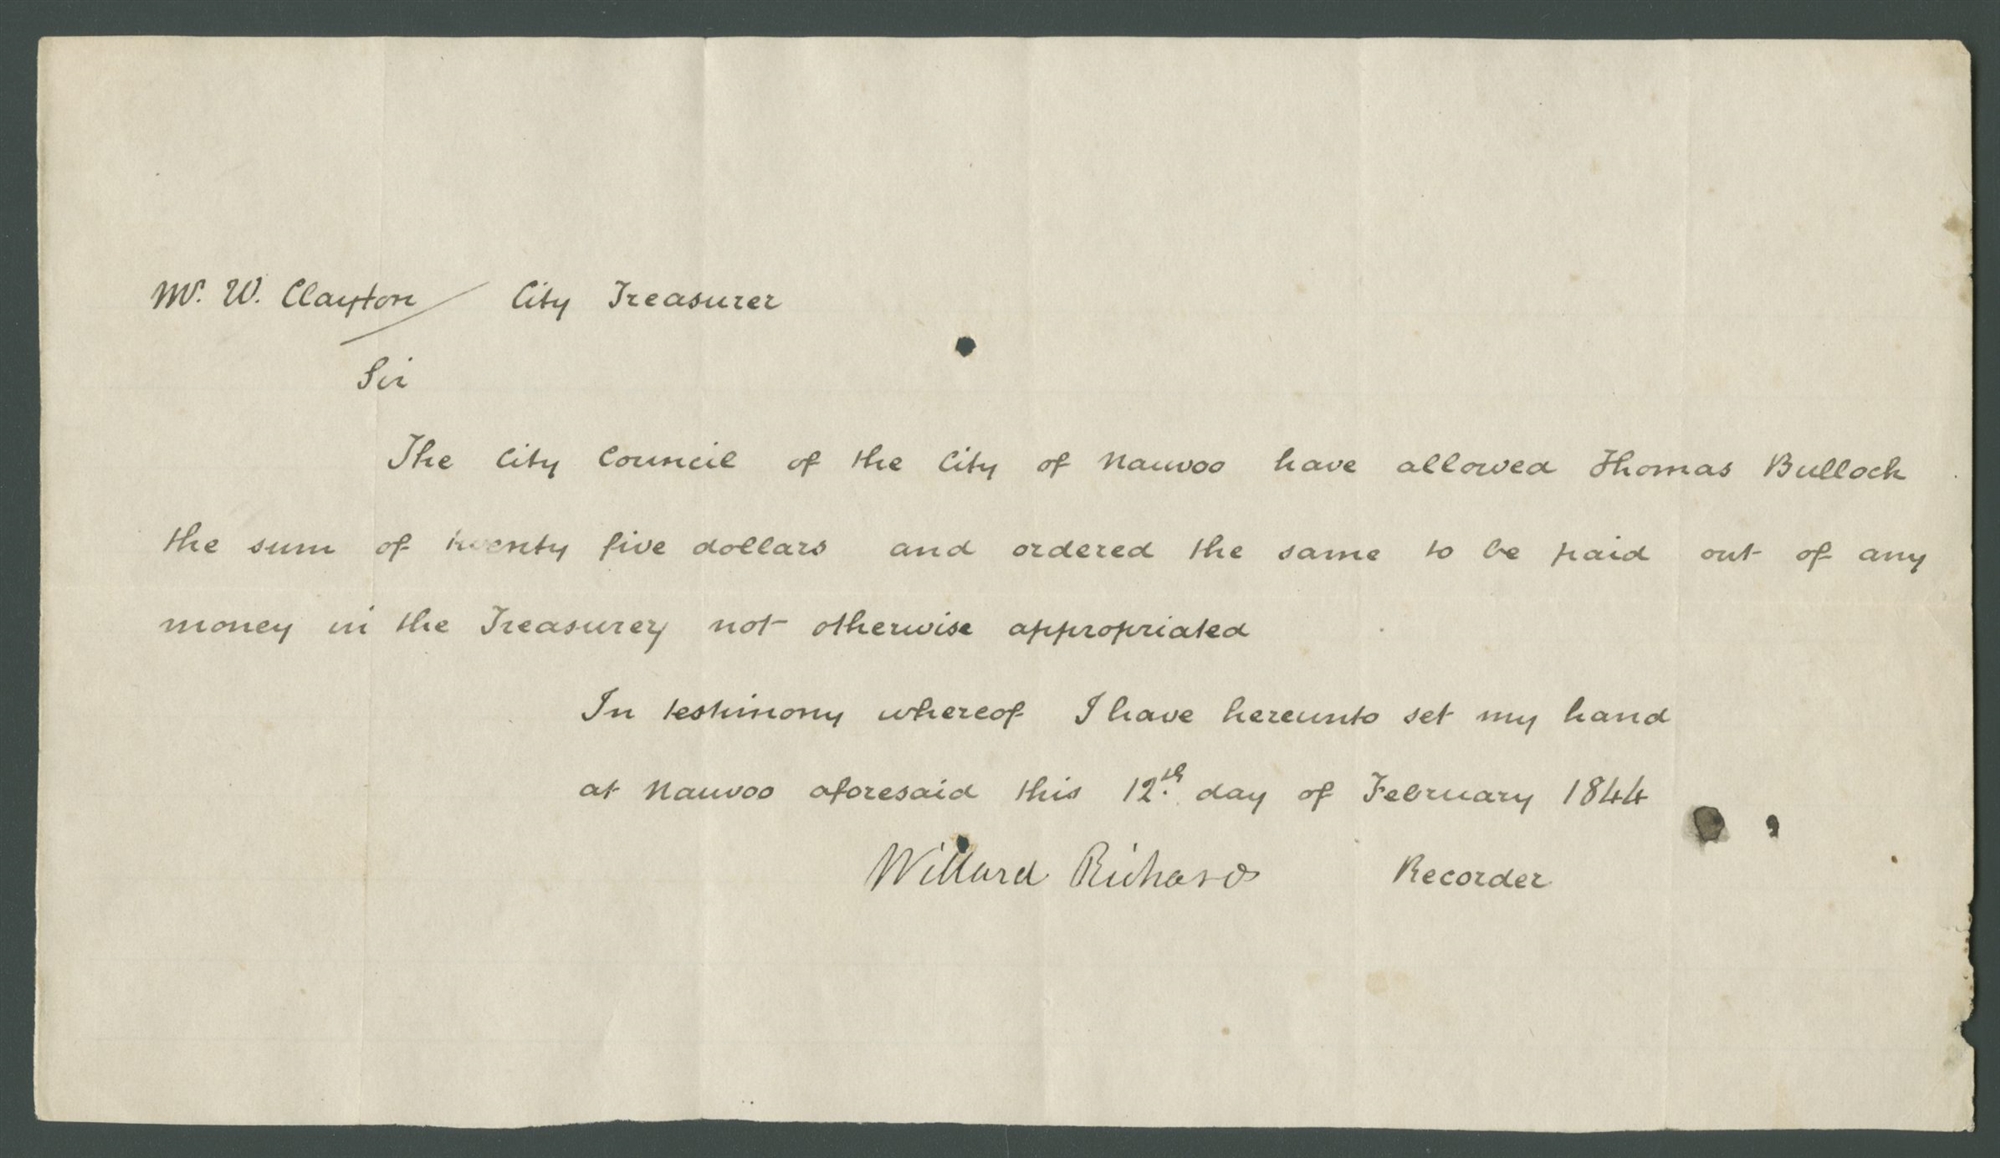 Mr. W. Clayton / City Treasurer
Sir
The City Council of the City of Nauvoo have allowed Thomas Bullock
the sum of twenty five dollars and ordered the same to be paid out of any
money in the Treasurey not otherwise appropriated
In testimony whereof I have hereunto set my hand
at Nauvoo aforesaid this 12th. day of February 1844
Willard Richards Recorder